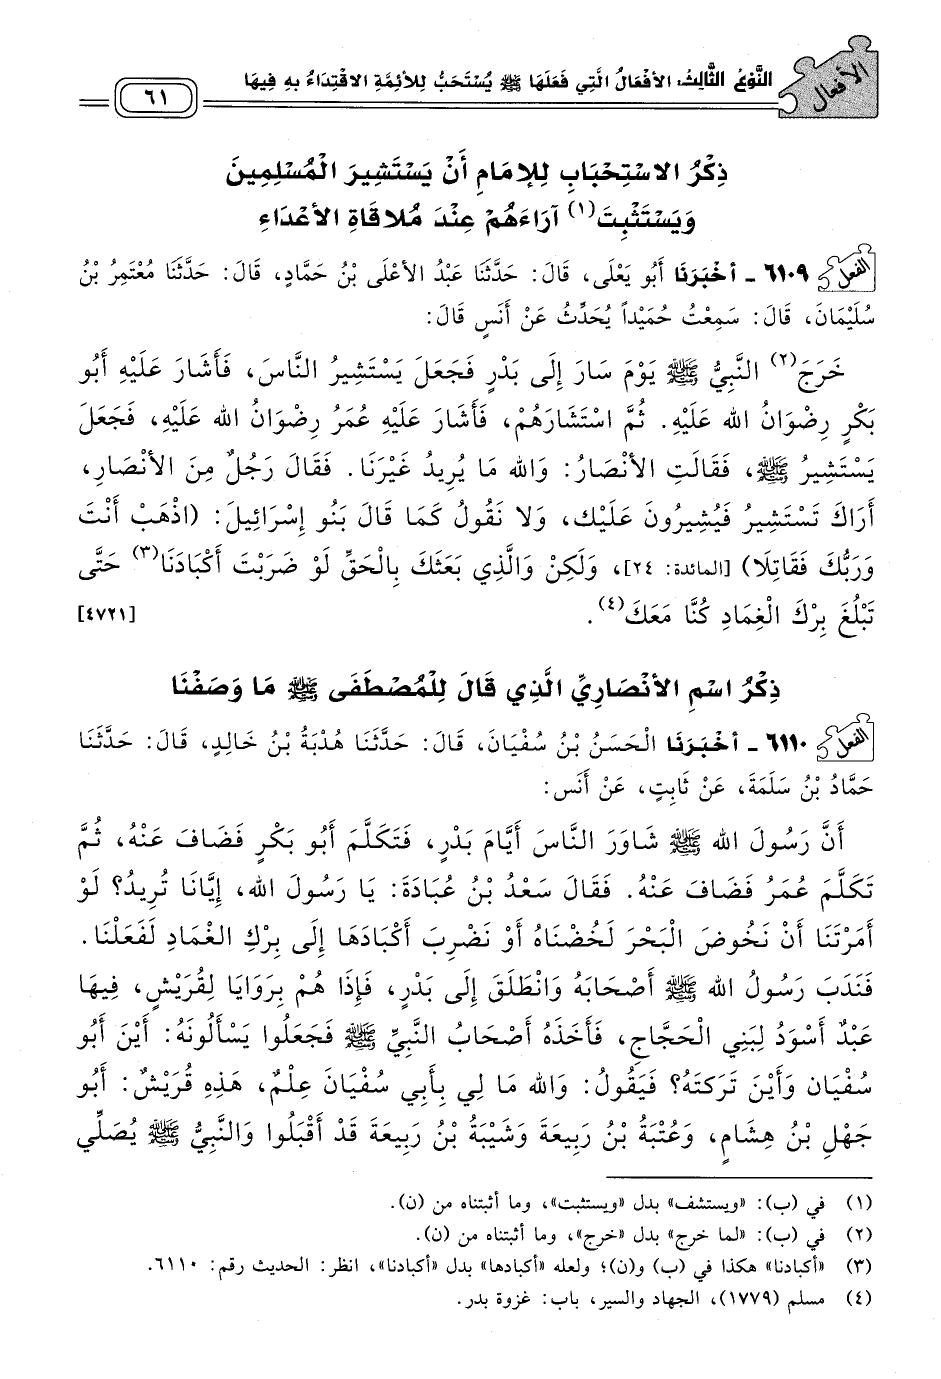 الأفعال
النَّوْعُ الثَّالِثُ: الأَفْعَالُ الَّتِي فَعَلَهَا ﷺ يُسْتَحَبُّ لِلأَئِمَّةِ الاقْتِدَاءُ بِهِ فِيهَا
٦١
ذِكْرُ الاسْتِحْبَابِ لِلإِمَامِ أَنْ يَسْتَشِيرَ الْمُسْلِمِينَ
وَيَسْتَثْبِتَ(١) آرَاءَهُمْ عِنْدَ مُلاقَاةِ الأَعْدَاءِ
الفعل ٦١٠٩ - أَخْبَرَنَا أَبُو يَعْلَى، قَالَ: حَدَّثَنَا عَبْدُ الأَعْلَى بْنُ حَمَّادٍ، قَالَ: حَدَّثَنَا مُعْتَمِرُ بْنُ
سُلَيْمَانَ، قَالَ: سَمِعْتُ حُمَيْداً يُحَدِّثُ عَنْ أَنَسٍ قَالَ:
خَرَجَ(٢) النَّبِيُّ ﷺ يَوْمَ سَارَ إِلَى بَدْرٍ فَجَعَلَ يَسْتَشِيرُ النَّاسَ، فَأَشَارَ عَلَيْهِ أَبُو
بَكْرٍ رِضْوَانُ الله عَلَيْهِ. ثُمَّ اسْتَشَارَهُمْ، فَأَشَارَ عَلَيْهِ عُمَرُ رِضْوَانُ الله عَلَيْهِ، فَجَعَلَ
يَسْتَشِيرُ ﷺ، فَقَالَتِ الأَنْصَارُ: وَالله مَا يُرِيدُ غَيْرَنَا. فَقَالَ رَجُلٌ مِنَ الأَنْصَارِ،
أَرَاكَ تَسْتَشِيرُ فَيُشِيرُونَ عَلَيْكَ، وَلا نَقُولُ كَمَا قَالَ بَنُو إِسْرَائِيلَ: (اذْهَبْ أَنْتَ
وَرَبُّكَ فَقَاتِلَا) [المائدة: ٢٤]، وَلَكِنْ وَالَّذِي بَعَثَكَ بِالْحَقِّ لَوْ ضَرَبْتَ أَكْبَادَنَا(٣) حَتَّى
تَبْلُغَ بِرْكَ الْغِمَادِ كُنَّا مَعَكَ(٤). [٤٧٢١]
ذِكْرُ اسْمِ الأَنْصَارِيِّ الَّذِي قَالَ لِلْمُصْطَفَى ﷺ مَا وَصَفْنَا
الفعل ٦١١٠ - أَخْبَرَنَا الْحَسَنُ بْنُ سُفْيَانَ، قَالَ: حَدَّثَنَا هُدْبَةُ بْنُ خَالِدٍ، قَالَ: حَدَّثَنَا
حَمَّادُ بْنُ سَلَمَةَ، عَنْ ثَابِتٍ، عَنْ أَنَس:
أَنَّ رَسُولَ الله ﷺ شَاوَرَ النَّاسَ أَيَّامَ بَدْرٍ، فَتَكَلَّمَ أَبُو بَكْرٍ فَضَافَ عَنْهُ، ثُمَّ
تَكَلَّمَ عُمَرُ فَضَافَ عَنْهُ. فَقَالَ سَعْدُ بْنُ عُبَادَةَ: يَا رَسُولَ الله، إِيَّانَا تُرِيدُ؟ لَوْ
أَمَرْتَنَا أَنْ نَخُوضَ الْبَحْرَ لَخُضْنَاهُ أَوْ نَضْرِبَ أَكْبَادَهَا إِلَى بِرْكِ الْغُمَادِ لَفَعَلْنَا.
فَنَدَبَ رَسُولُ الله ﷺ أَصْحَابَهُ وَانْطَلَقَ إِلَى بَدْرٍ، فَإِذَا هُمْ بِرَوَايَا لِقُرَيْشٍ، فِيهَا
عَبْدٌ أَسْوَدُ لِبَنِي الْحَجَّاجِ، فَأَخَذَهُ أَصْحَابُ النَّبِيِّ ﷺ فَجَعَلُوا يَسْأَلُونَهُ: أَيْنَ أَبُو
سُفْيَان وَأَيْنَ تَرَكْتَهُ؟ فَيَقُولُ: وَالله مَا لِي بِأَبِي سُفْيَانَ عِلْمٌ، هَذِهِ قُرَيْشٌ: أَبُو
جَهْلِ بْنُ هِشَامٍ، وَعُتْبَةُ بْنُ رَبِيعَةَ وَشَيْبَةُ بْنُ رَبِيعَةَ قَدْ أَقْبَلُوا وَالنَّبِيُّ ﷺ يُصَلِّي
(١) في (ب): «ويستشف» بدل «ويستثبت»، وما أثبتناه من (ن).
(٢) في (ب): «لما خرج» بدل «خرج»، وما أثبتناه من (ن).
(٣) «أكبادنا» هكذا في (ب) و(ن)؛ ولعله «أكبادها» بدل «أكبادنا»، انظر: الحديث رقم: ٦١١٠.
(٤) مسلم (١٧٧٩)، الجهاد والسير، باب: غزوة بدر.